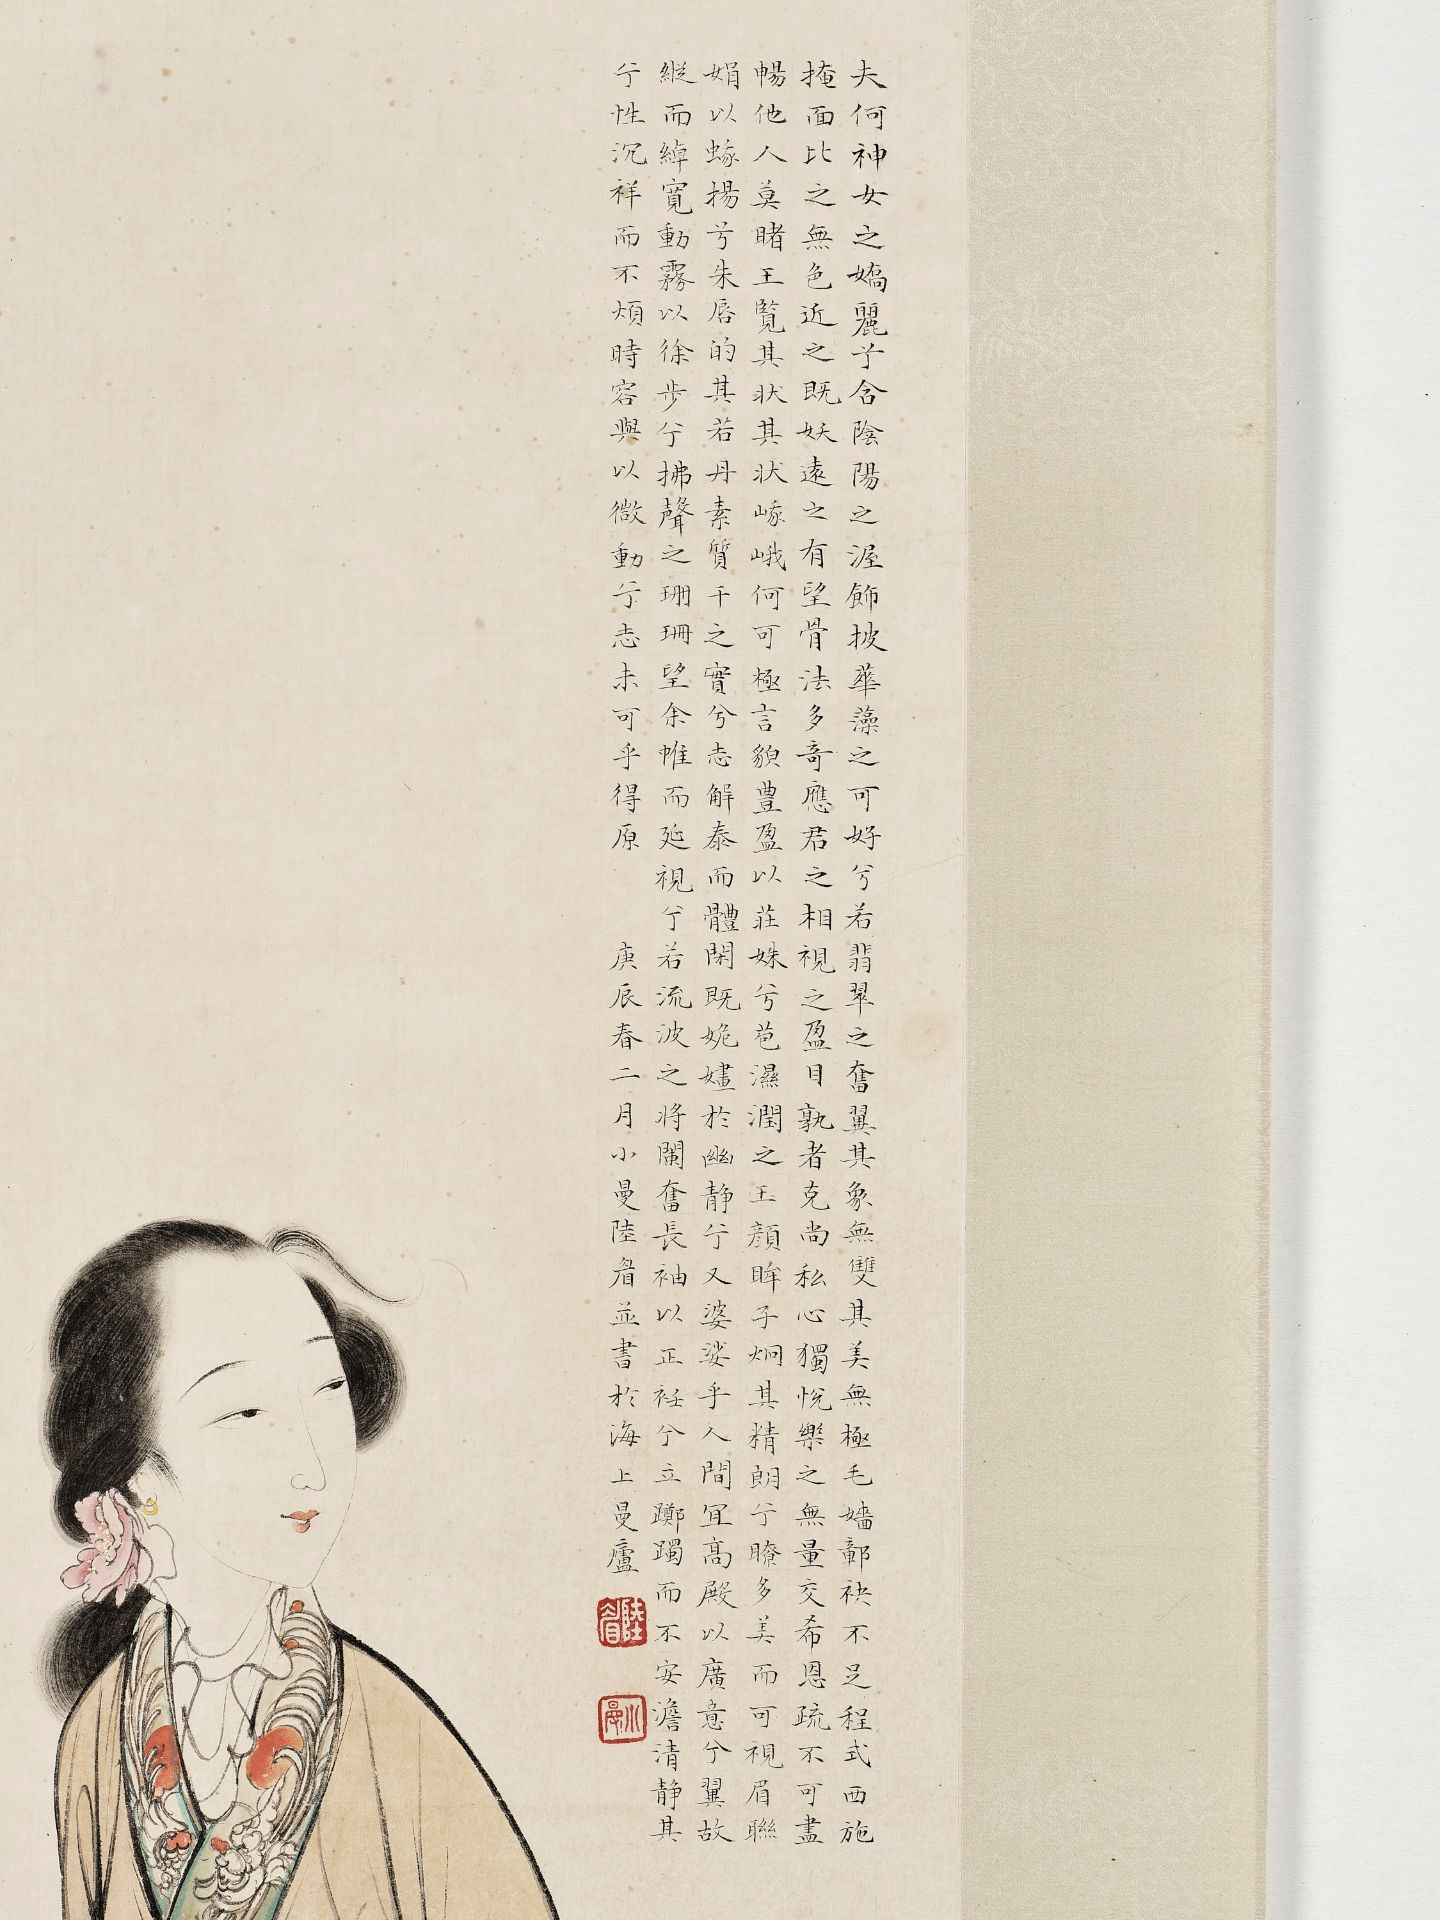 夫何神女之嬌麗兮含陰陽之渥飾披華藻之可好兮若翡翠之奮翼其象無雙其美無極毛嬙鄣袂不足程式西施
掩面比之無色近之既妖遠之有望骨法多奇應君之相視之盈目孰者克尚私心獨悅樂之無量交希恩疏不可盡
暢他人莫睹王覽其狀其狀峨峨何可極言貌豐盈以莊姝兮苞濕潤之玉顏眸子炯其精朗兮瞭多美而可視眉聯
娟以蛾揚兮朱唇的其若丹素質干之實兮志解泰而體閑既姽嫿於幽靜兮又婆娑乎人間宜高殿以廣意兮翼故
縱而綽寬動霧以徐步兮拂聲之珊珊望余帷而延視兮若流波之將闌奮長袖以正衽兮立躑躅而不安澹清靜其
兮性沉祥而不煩時容與以微動兮志未可乎得原 庚辰春二月小曼陸眉並書於海上曼廬
陸眉
小曼